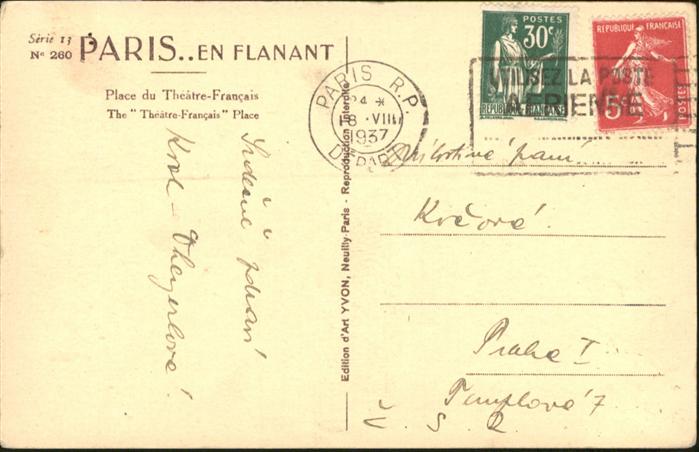 Série 13
Nº 260
PARIS..EN FLANANT
Place du Théâtre-Français
The "Théâtre-Français" Place
Srdečné
i zdraví
Edition d'Art YVON, Neuilly-Paris - Reproduction interdite
POSTES
30c
REPUBLIQUE FRANÇAISE
REPUBLIQUE FRANÇAISE
5c
POSTES
PARIS R.P.
24 *
18 VIII
1937
DÉPART
UTILISEZ LA POSTE
AÉRIENNE
Milostivá paní
Praha I
Templová 7
Č. S. R.